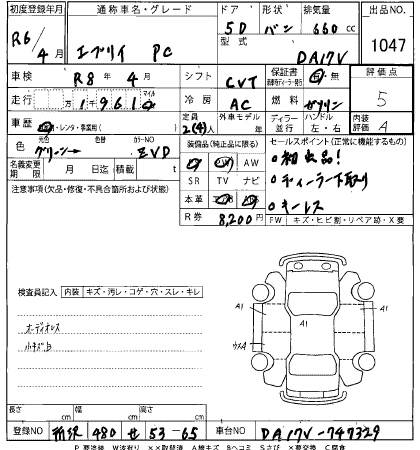 初度登録年月 通称車名・グレード ドア 形状 排気量 出品NO.
R6/4月 エブリイ PC 5D バン 660cc 1047
型式 DA17V
車検 R8年4月 シフト CVT 保証書 有 無 評価点
走行 万1961 マイル 冷房 AC 燃料 ガソリン 5
車歴 レンタ・事業用( ) 定員 2(4)人 外車モデル 年 ディーラー 並行 ハンドル 左・右 内装評価 A
色 元色 グリーン→ 色替 カラーNO ZVD 装備品(純正品に限る) セールスポイント(正常に機能するもの)
名義変更期限 月 日迄 積載 t AW ・初出品!
注意事項(欠品・修復・不具合箇所および状態) SR TV ナビ ・ディーラー下取り
本革 ・キーレス
R券 8,200円 FW キズ・ヒビ割・リペア跡・X要
検査員記入 内装 キズ・汚レ・コゲ・穴・スレ・キレ
オーディオレス
小キズ.B
A1
A1
A1
長さ cm 幅 cm 高さ cm
登録NO 所沢 480 せ 53-65 車台NO DA17V-747329
P要塗装 W波有り ××取替済 A線キズ Bヘコミ Sさび ×要交換 C腐食